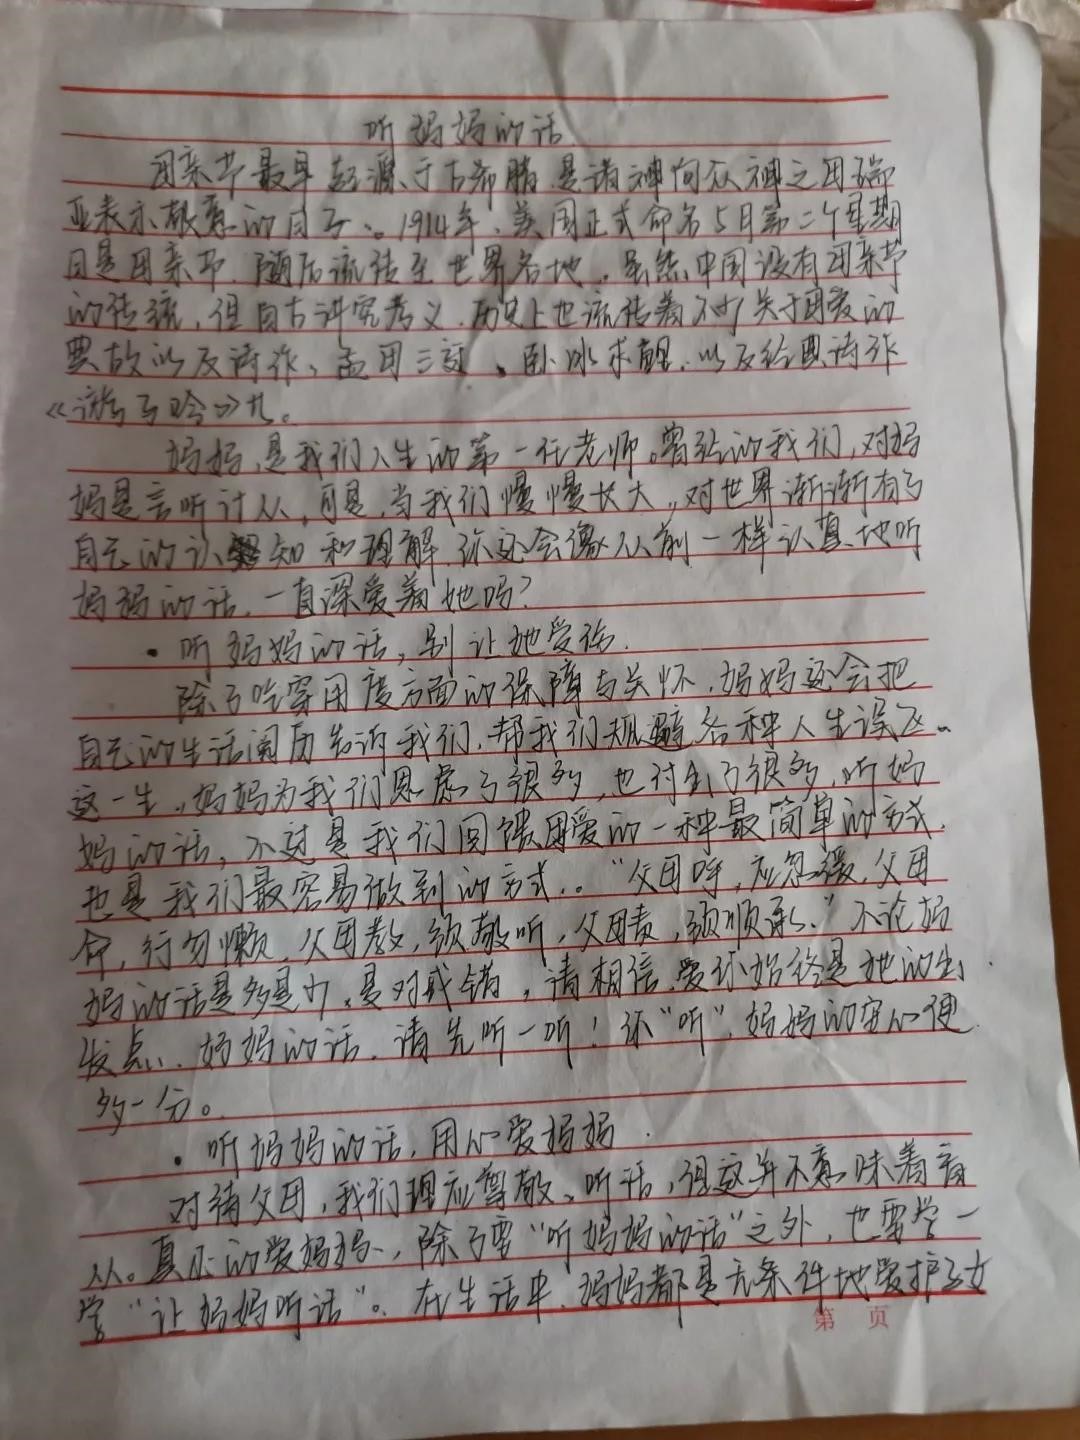 听妈妈的话
母亲节最早起源于古希腊,是诸神向众神之母瑞
亚表示敬意的日子。1914年,美国正式命名5月第二个星期
日是母亲节,随后流传至世界各地。虽然中国没有母亲节
的传统,但自古讲究孝义,历史上也流传着不少关于母爱的
典故以及诗作,孟母三迁、卧冰求鲤,以及经典诗作
《游子吟》
妈妈,是我们人生的第一任老师。曾经的我们,对妈
妈是言听计从,可是,当我们慢慢长大,对世界渐渐有了
自己的认知和理解,你还会像从前一样认真地听
妈妈的话,一直深爱着她吗?
·听妈妈的话,别让她受伤.
除了吃穿用度方面的保障与关怀,妈妈还会把
自己的生活阅历告诉我们,帮我们规避各种人生误区。
这一生,妈妈为我们思虑了很多,也付出了很多,听妈
妈的话,不过是我们回馈母爱的一种最简单的方式,
也是我们最容易做到的方式。“父母呼,应忽缓,父母
命,行勿懒,父母教,须敬听,父母责,须顺承。”不论妈
妈的话是多是少,是对或错,请相信,爱你始终是她的出
发点,妈妈的话,请先听一听!你“听”,妈妈的安心便
多一分。
·听妈妈的话,用心爱妈妈.
对待父母,我们理应尊敬、听话,但这并不意味着盲
从。真正的爱妈妈,除了要“听妈妈的话”之外,也要学一
学“让妈妈听话”。在生活中,妈妈都是无条件地爱护子女
第 页